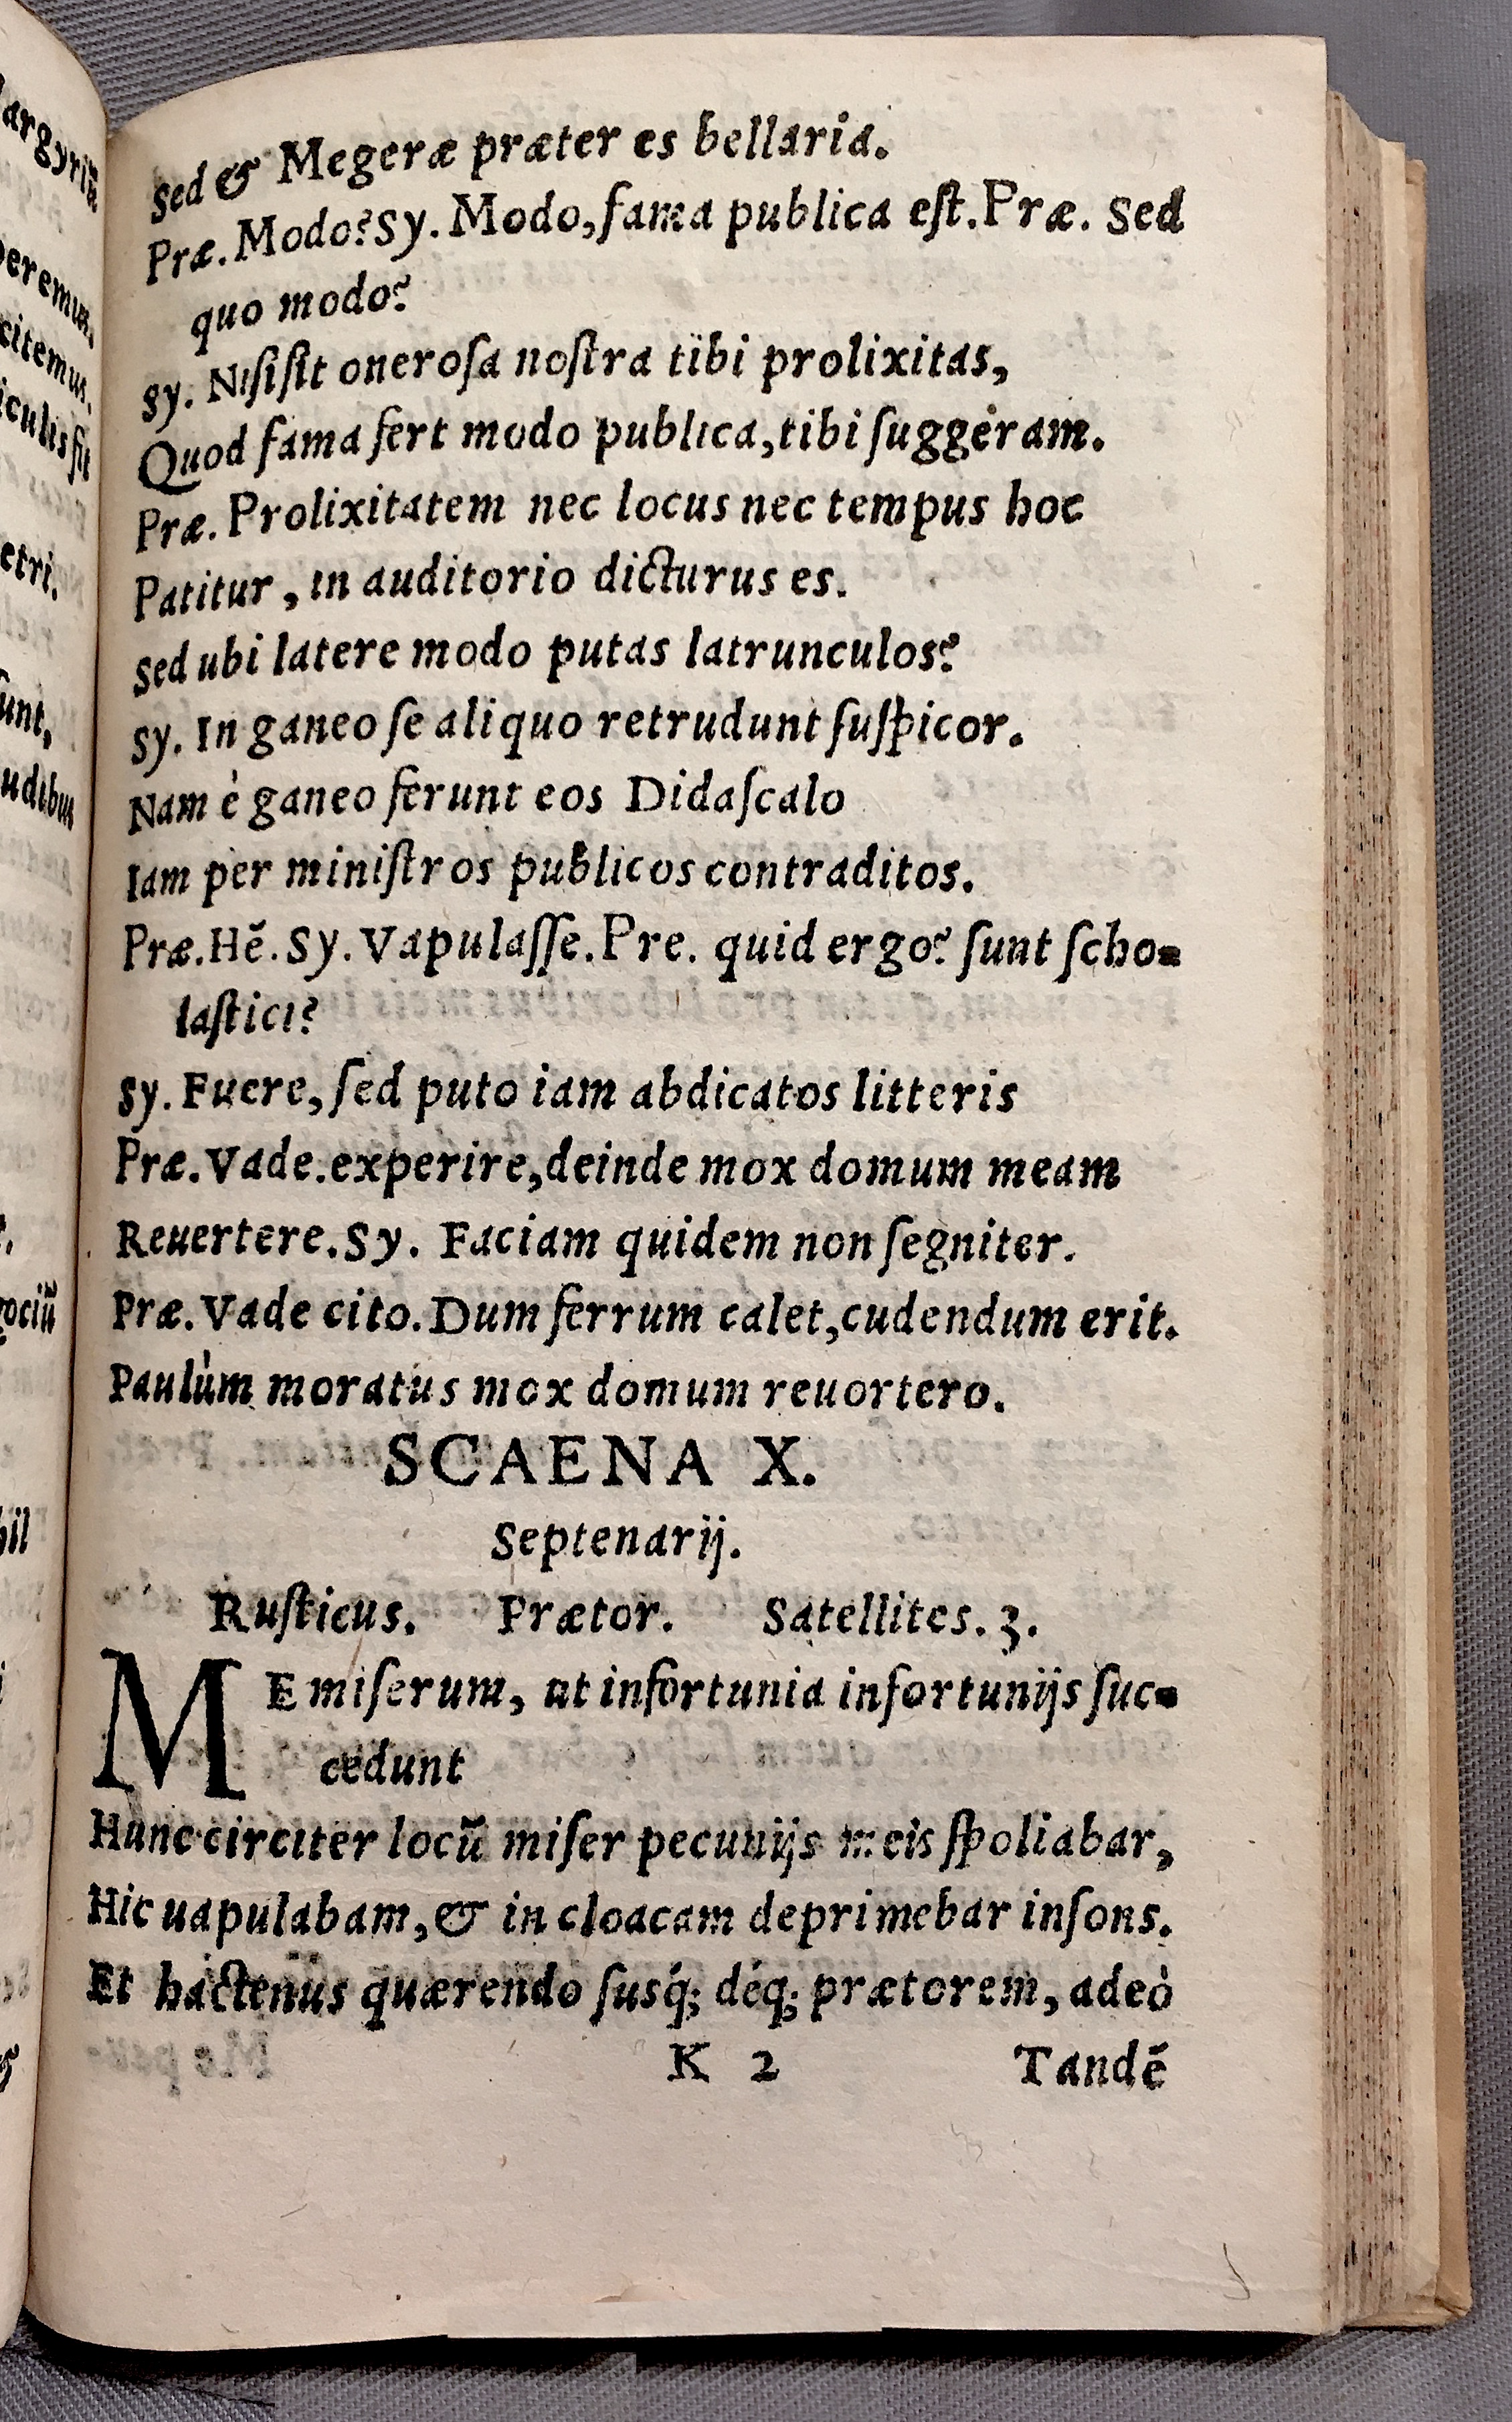 Sed & Megeræ præter es bellaria.
Præ. Modo? Sy. Modo, fama publica eſt. Præ. Sed
quo modo?
Sy. Niſi ſit oneroſa noſtra tibi prolixitas,
Quod fama fert modo publica, tibi ſuggeram.
Præ. Prolixitatem nec locus nec tempus hoc
Patitur, in auditorio dicturus es.
Sed ubi latere modo putas latrunculos?
Sy. In ganeo ſe aliquo retrudunt ſuſpicor.
Nam è ganeo ferunt eos Didaſcalo
Iam per miniſtros publicos contraditos.
Præ. Hẽ. Sy. Vapulaſſe. Pre. quid ergo? ſunt ſcho-
laſtici?
Sy. Fuere, ſed puto iam abdicatos litteris
Præ. Vade. experire, deinde mox domum meam
Reuertere. Sy. Faciam quidem non ſegniter.
Præ. Vade cito. Dum ferrum calet, cudendum erit.
Paulùm moratus mox domum reuortero.
SCAENA X.
Septenarij.
Ruſticus. Prætor. Satellites. 3.
ME miſerum, ut infortunia infortunijs ſuc-
cedunt
Hunc circiter locũ miſer pecunijs meis ſpoliabar,
Hic uapulabam, & in cloacam deprimebar inſons.
Et hactenus quærendo ſusq́; déq; prætorem, adeò
K 2 Tandẽ